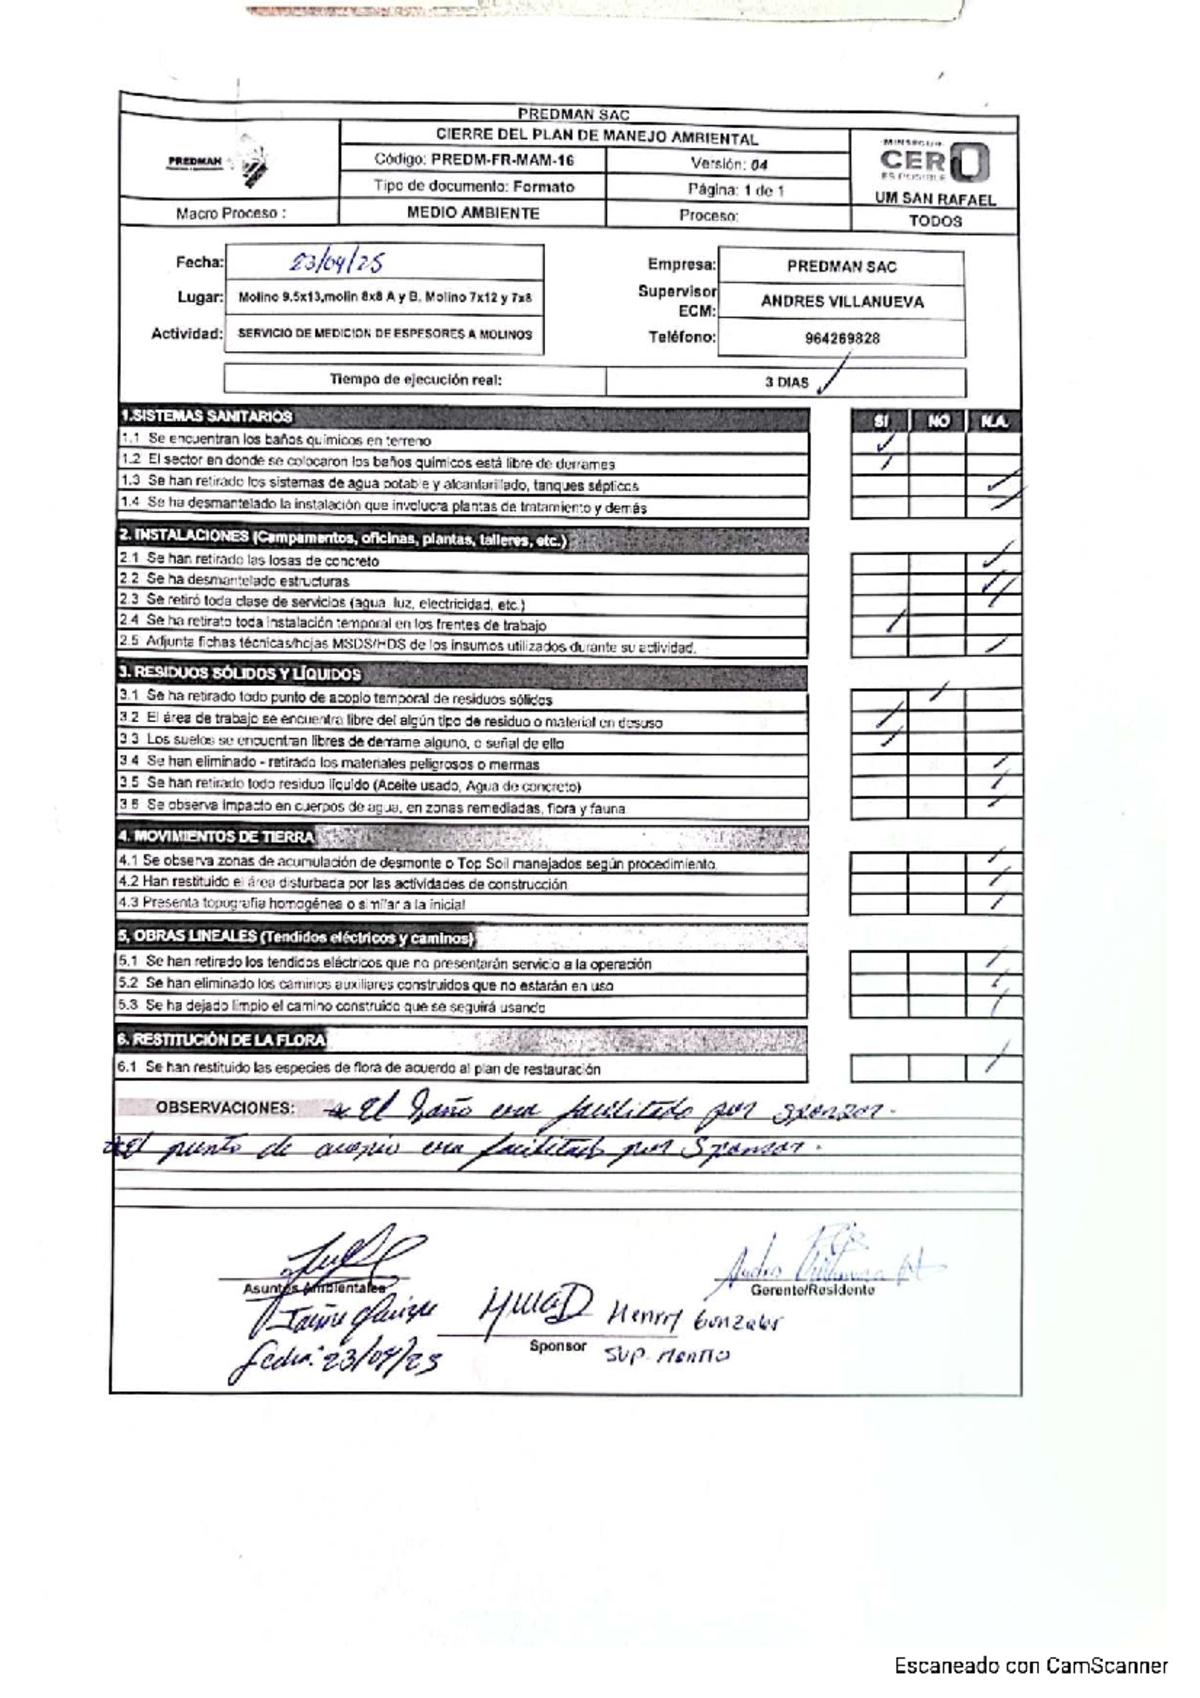 PREDMAN SAC
CIERRE DEL PLAN DE MANEJO AMBIENTAL
PREDMAN
Código: PREDM-FR-MAM-16
Versión: 04
MINSEGUR
CERO
ES POSIBLE
Tipo de documento: Formato
Página: 1 de 1
UM SAN RAFAEL
Macro Proceso :
MEDIO AMBIENTE
Proceso:
TODOS
Fecha: 23/04/25
Empresa: PREDMAN SAC
Lugar: Molino 9.5x13,molin 8x8 A y B. Molino 7x12 y 7x8
Supervisor ECM: ANDRES VILLANUEVA
Actividad: SERVICIO DE MEDICION DE ESPESORES A MOLINOS
Teléfono: 964269828
Tiempo de ejecución real: 3 DIAS ✓
1.SISTEMAS SANITARIOS SI NO N.A.
1.1 Se encuentran los baños químicos en terreno
1.2 El sector en donde se colocaron los baños químicos está libre de derrames
1.3 Se han retirado los sistemas de agua potable y alcantarillado, tanques sépticos
1.4 Se ha desmantelado la instalación que involucra plantas de tratamiento y demás
2. INSTALACIONES (Campamentos, oficinas, plantas, talleres, etc.)
2.1 Se han retirado las losas de concreto
2.2 Se ha desmantelado estructuras
2.3 Se retiró toda clase de servicios (agua, luz, electricidad, etc.)
2.4 Se ha retirato toda instalación temporal en los frentes de trabajo
2.5 Adjunta fichas técnicas/hojas MSDS/HDS de los insumos utilizados durante su actividad.
3. RESIDUOS SÓLIDOS Y LÍQUIDOS
3.1 Se ha retirado todo punto de acopio temporal de residuos sólidos
3.2 El área de trabajo se encuentra libre del algún tipo de residuo o material en desuso
3.3 Los suelos se encuentran libres de derrame alguno, o señal de ello
3.4 Se han eliminado - retirado los materiales peligrosos o mermas
3.5 Se han retirado todo residuo líquido (Aceite usado, Agua de concreto)
3.6 Se observa impacto en cuerpos de agua, en zonas remediadas, flora y fauna
4. MOVIMIENTOS DE TIERRA
4.1 Se observa zonas de acumulación de desmonte o Top Soil manejados según procedimiento
4.2 Han restituido el área disturbada por las actividades de construcción
4.3 Presenta topografía homogénea o similar a la inicial
5, OBRAS LINEALES (Tendidos eléctricos y caminos)
5.1 Se han retirado los tendidos eléctricos que no presentarán servicio a la operación
5.2 Se han eliminado los caminos auxiliares construidos que no estarán en uso
5.3 Se ha dejado limpio el camino construido que se seguirá usando
6. RESTITUCIÓN DE LA FLORA
6.1 Se han restituido las especies de flora de acuerdo al plan de restauración
OBSERVACIONES: El baño era facilitado por sponsor.
El punto de acopio era facilitado por Sponsor.
Asuntos Ambientales
Gerente/Residente
Jaime Quispe
Henry Gonzales
Sponsor
Fecha: 23/04/25
Escaneado con CamScanner